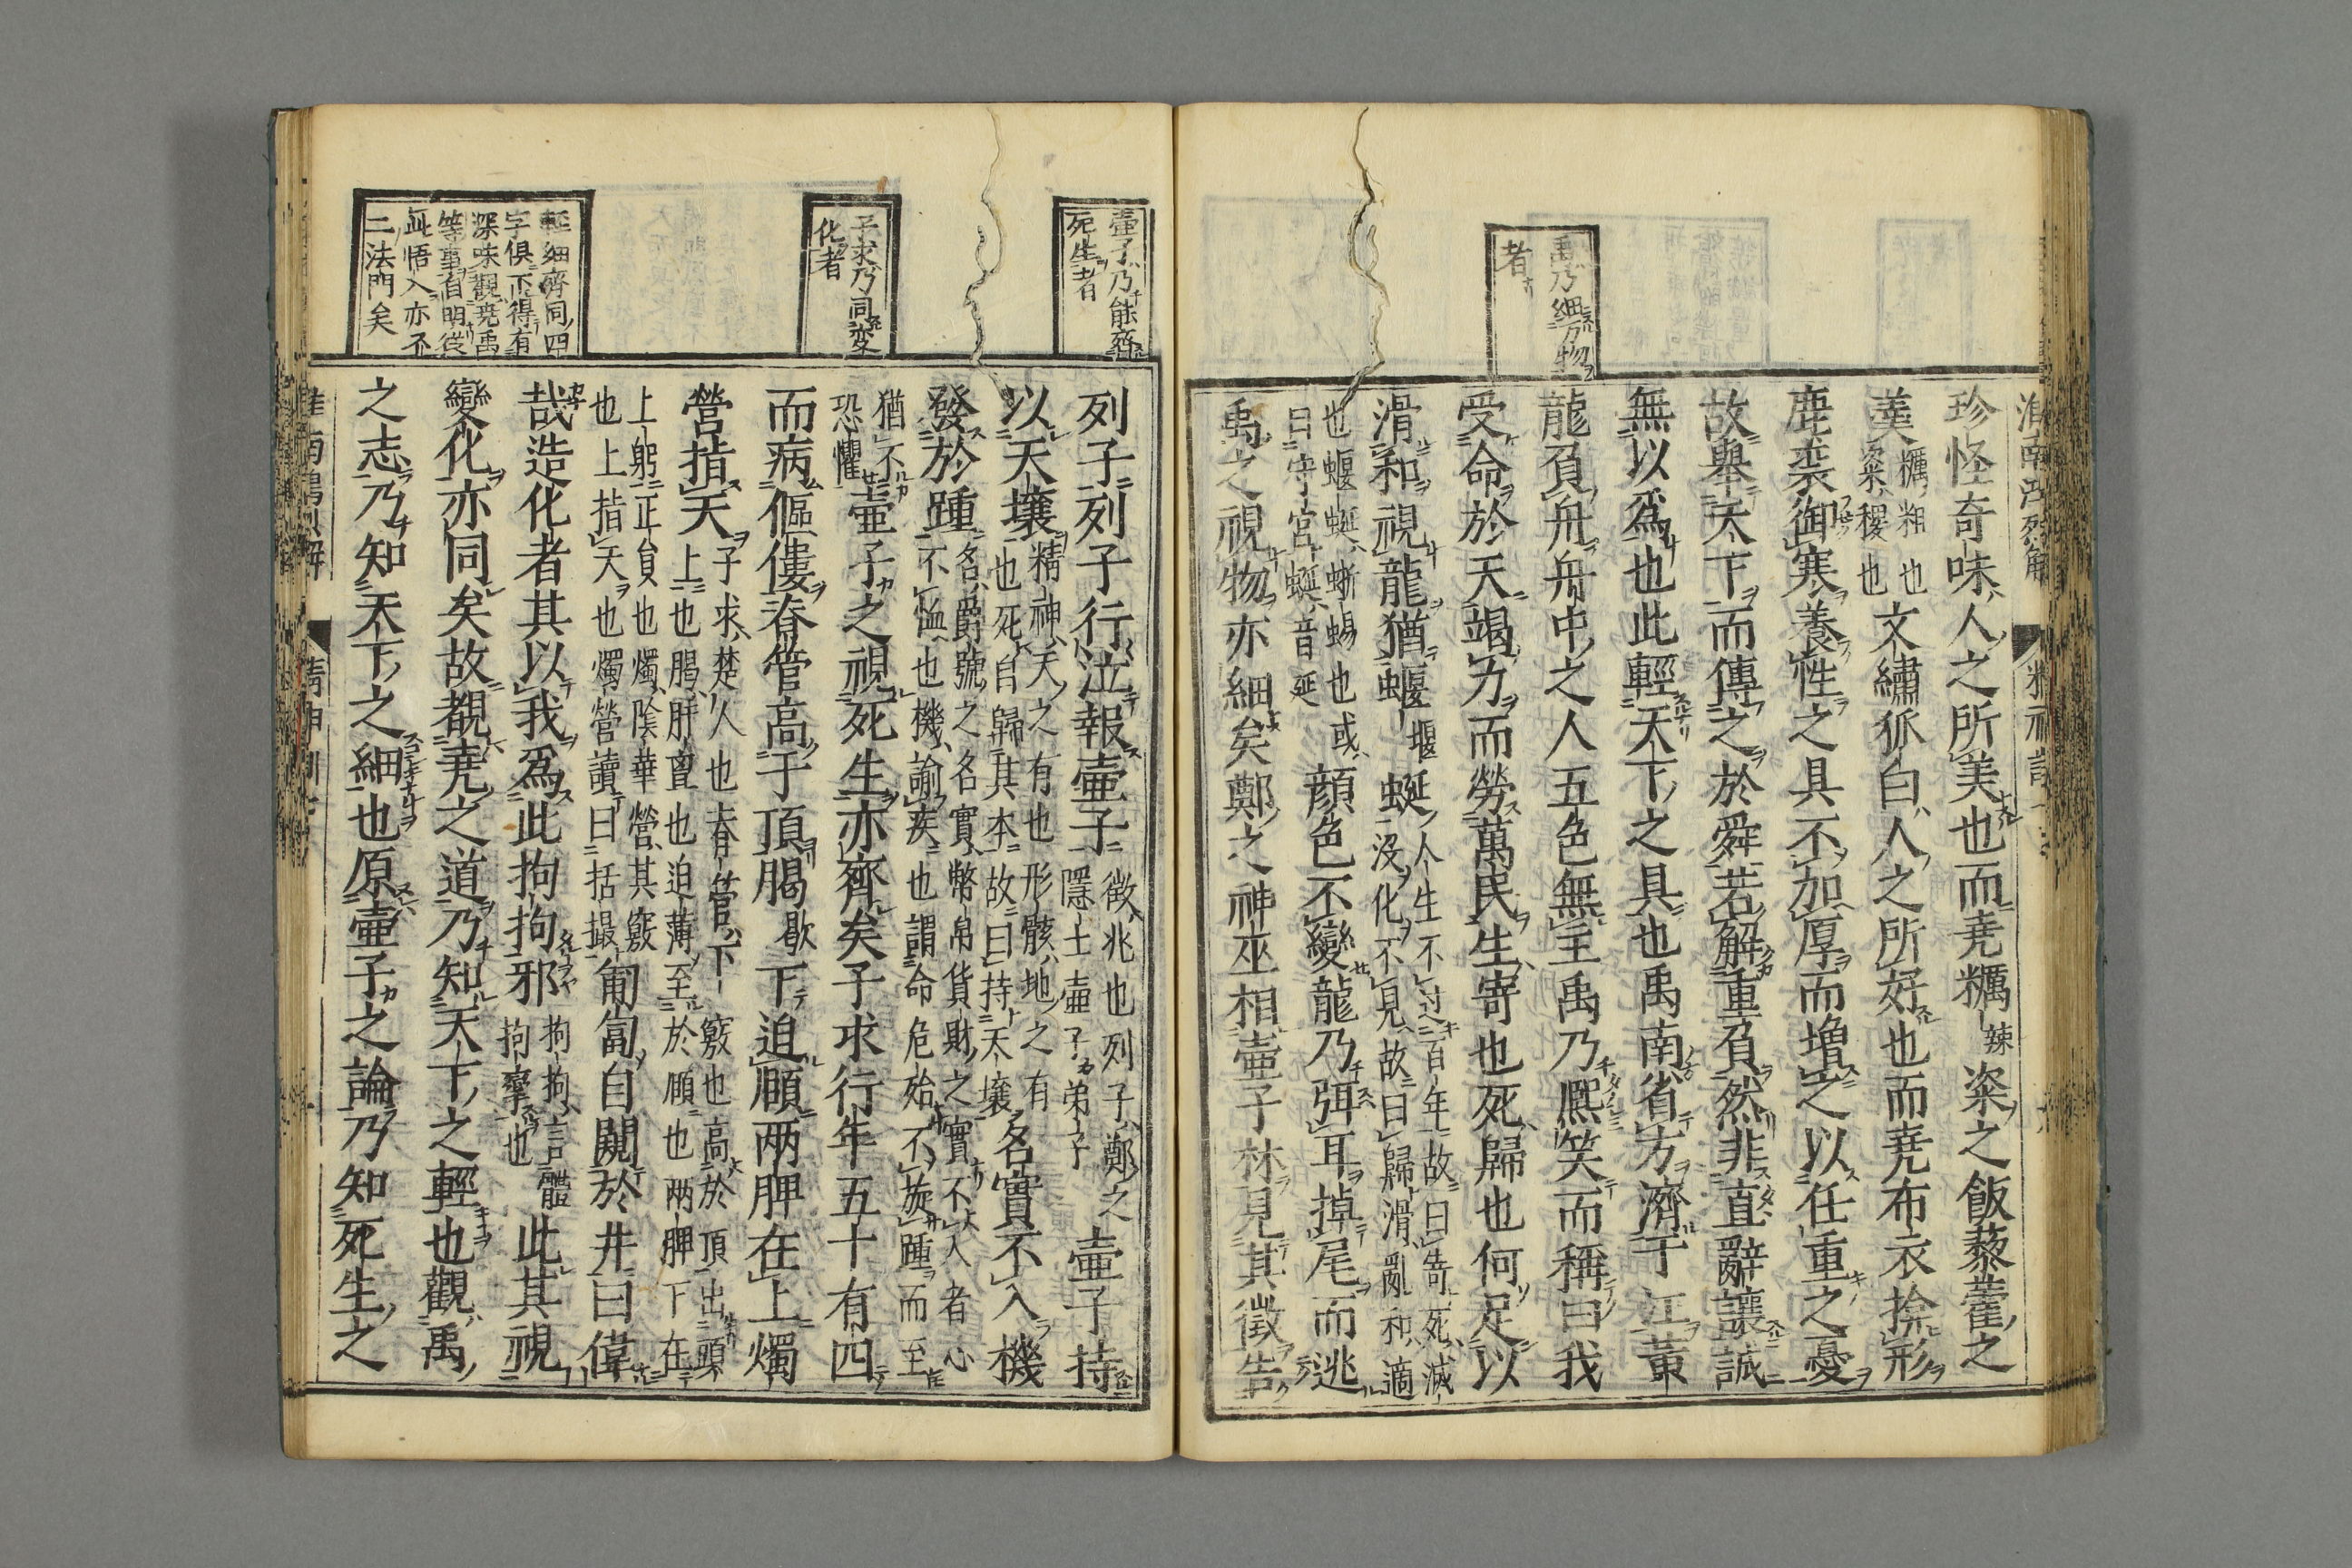 淮南鴻烈解 精神訓
禹乃細万物
者
珍怪奇味人之所美也而堯糲辣粢之飯藜藿之
羮糲粗也
粢稷也文繡狐白人之所好也而堯布衣揜形
鹿裘御寒養性之具不加厚而増之以任重之憂
故舉天下而傳之於舜若解重負然非直辭讓誠
無以爲也此輕天下之具也禹南省方濟于江黄
龍負舟舟中之人五色無主禹乃熈笑而稱曰我
受命於天竭力而勞萬民生寄也死歸也何足以
滑和視龍猶蝘堰蜒人生不過百年故曰寄死滅
没化不見故曰歸滑亂和適
也蝘蜒蜥蜴也或
曰守宮蜒音延顔色不變龍乃弭耳掉尾而逃
禹之視物亦細矣鄭之神巫相壺子林見其徴告
壺子乃能齊
死生者
子求乃同変
化者
輕細齊同四
字倶不得有
深味觀堯禹
等事自明從
此悟入亦不
二法門矣
列子列子行泣報壺子徴兆也列子鄭之
隱士壺子弟子壺子持
以天壤精神天之有也形骸地之有
也死自歸其本故曰持天壤名實不入機
發於踵名爵號之名實幣帛貨財之實不入者心
不恤也機諭疾也謂命危殆不旋踵而至
猶不
恐懼壺子之視死生亦齊矣子求行年五十有四
而病傴僂脊管高于頂䐛歇下迫頤両脾在上燭
營指天子求楚人也脊管下竅也高於頂出頭
上也䐛肝䯏也迫薄至於頤也両脾下在
上躬正負也燭陰華營其竅
也上指天也燭營讀曰括撮匍匐自闚於井曰偉
哉造化者其以我爲此拘拘邪拘拘言體
拘攣也此其視
變化亦同矣故覩堯之道乃知天下之輕也觀禹
之志乃知天下之細也原壺子之論乃知死生之